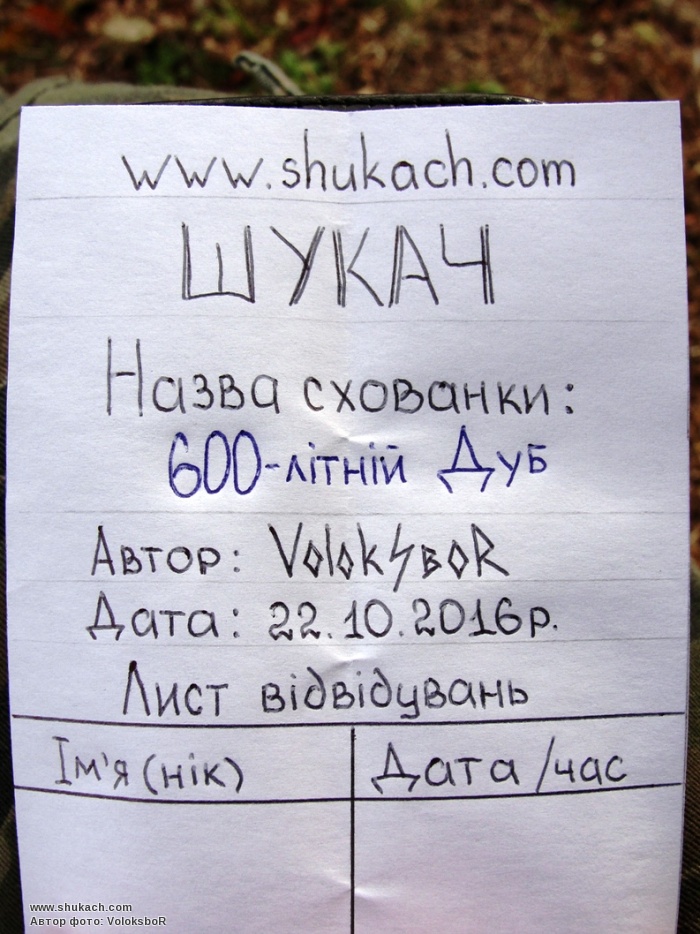 www.shukach.com
ШУКАЧ
Назва схованки:
600-літній Дуб
Автор: VolokSвoR
Дата: 22.10.2016р.
Лист відвідувань
Ім'я (нік) Дата/час
www.shukach.com
Автор фото: VoloksboR